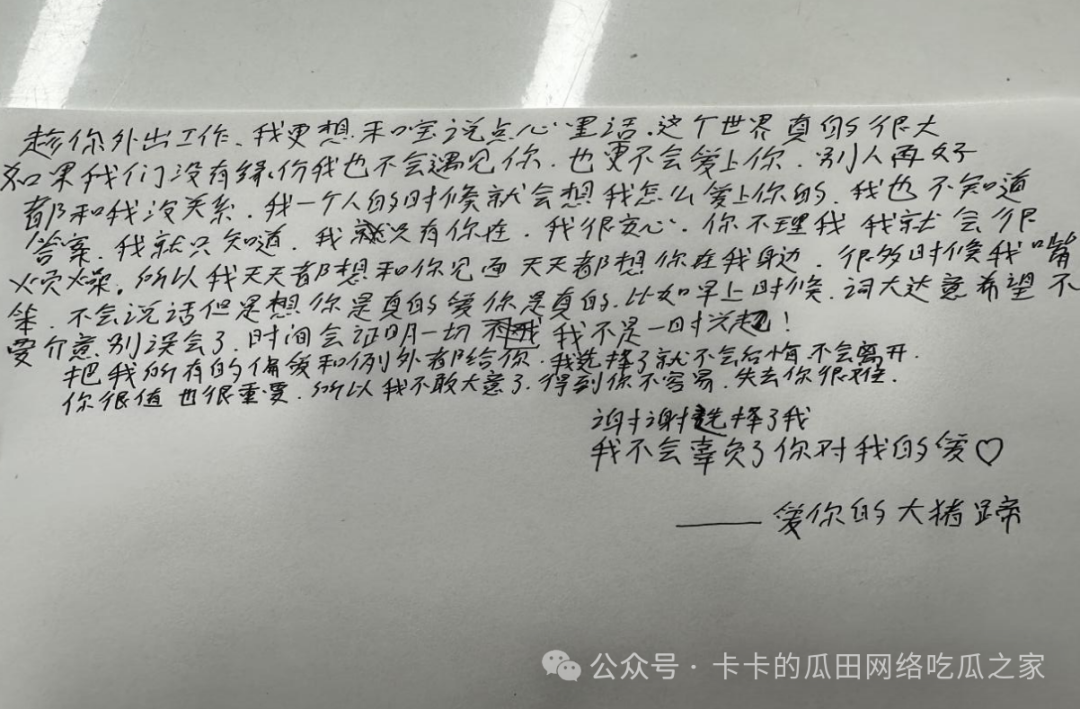 趁你外出工作、我更想和宝说点心里话.这个世界真的很大
如果我们没有缘份我也不会遇见你.也更不会爱上你.别人再好
都和我没关系.我一个人的时候就会想我怎么爱上你的.我也不知道
答案.我就只知道.我就只有你在.我很安心.你不理我我就会很
烦燥.所以我天天都想和你见面天天都想你在我身边.很多时候我嘴
笨.不会说话但是想你是真的爱你是真的.比如早上时候.词大达意希望不
要介意别误会了.时间会证明一切 我不是一时兴起!
把我所有的偏爱和例外都给你.我选择了就不会后悔.不会离开.
你很值也很重要.所以我不敢大意了.得到你不容易.失去你很难.
谢谢选择了我
我不会辜负了你对我的爱♡
——爱你的大猪蹄
公众号·卡卡的瓜田网络吃瓜之家